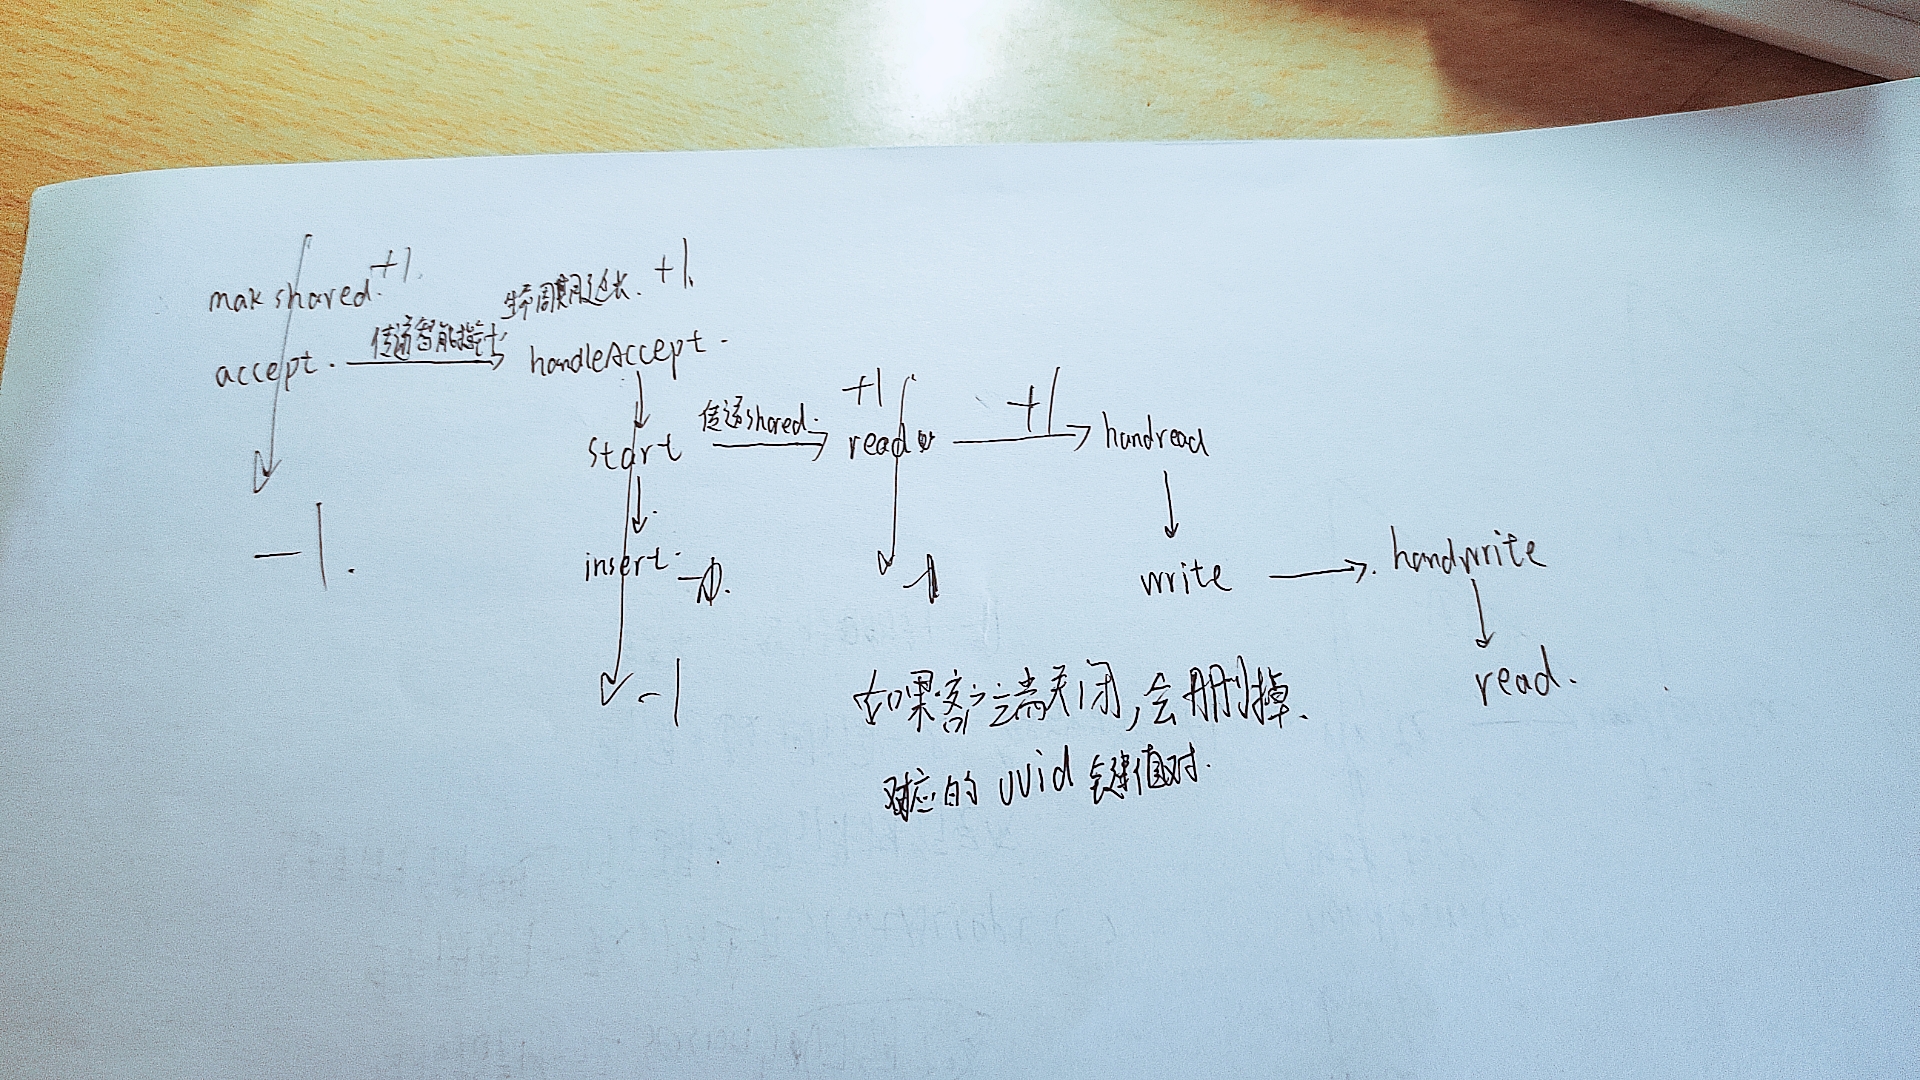 mak shared. +1.
生命周期延长. +1.
accept. 传递智能指针 handleAccept.
start 传递shared. read +1 +1 handread
insert.
-1.
write handwrite
-1
read.
如果客户端关闭,会删掉.
对应的 uuid 键值对.